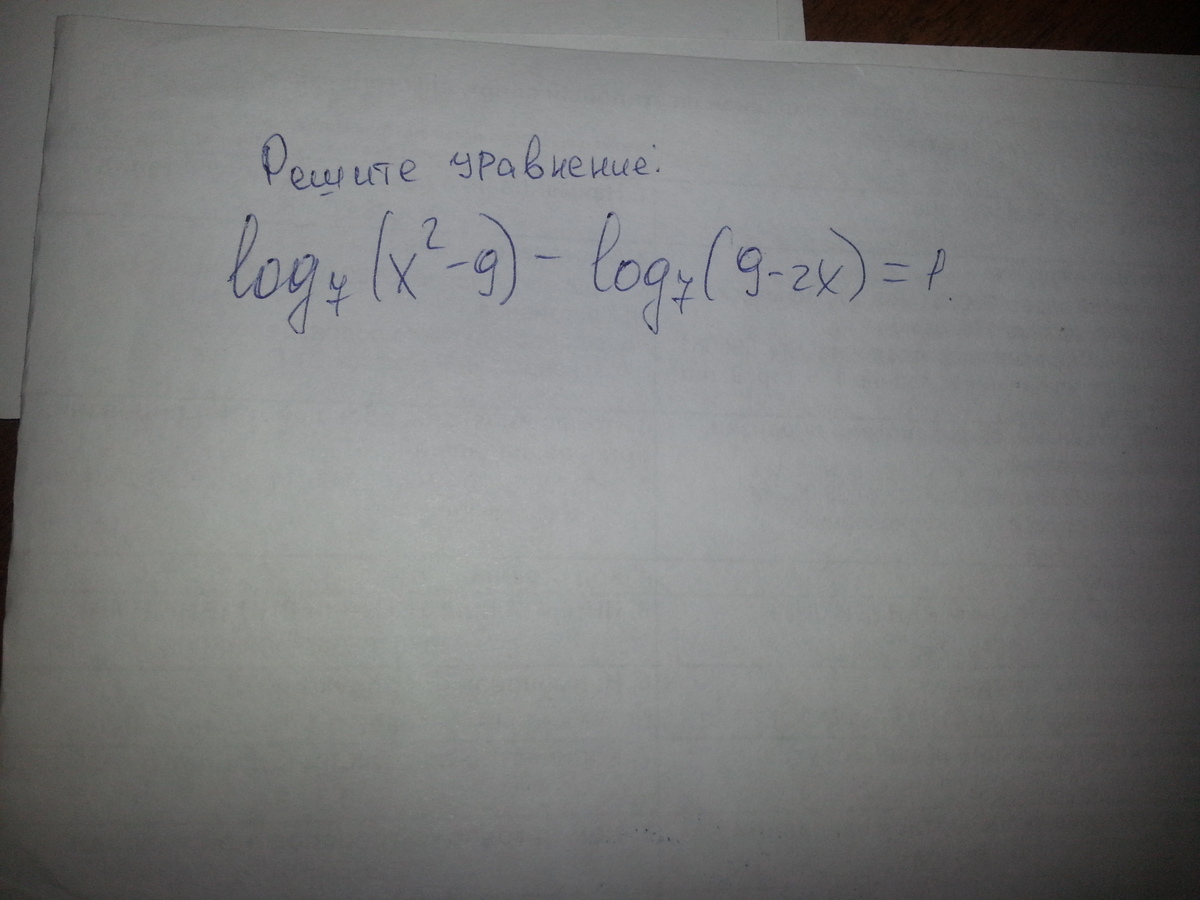 Решите уравнение:
log₇(x²-9) - log₇(9-2x) = 1.